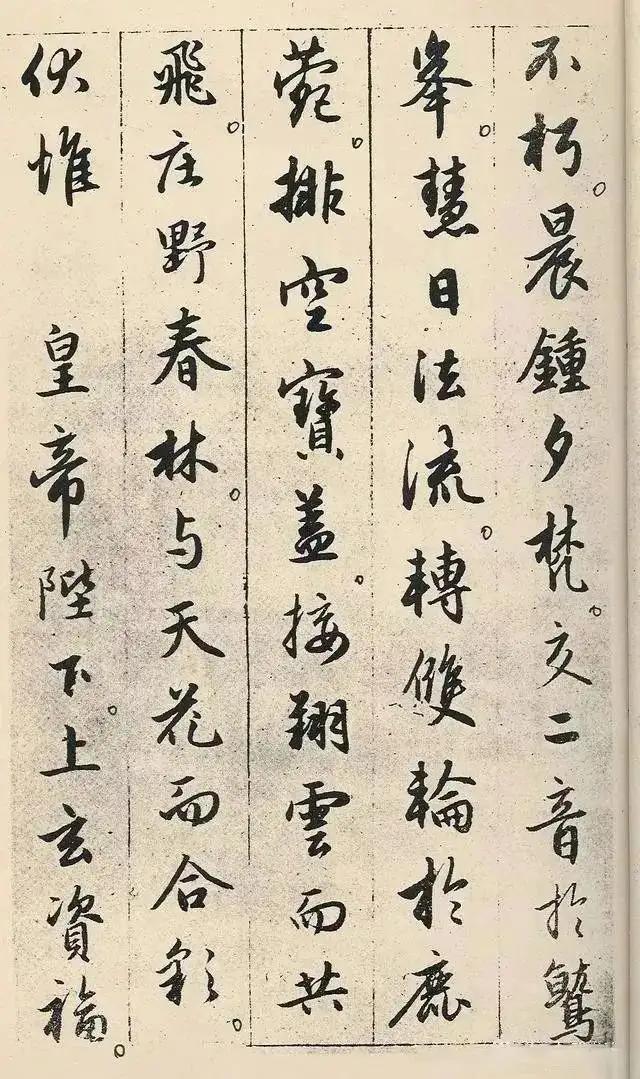 不朽。晨鍾夕梵。交二音於鷲
峯。慧日法流。轉雙輪於鹿
菀。排空寶盖。接翔雲而共
飛。庄野春林。与天花而合彩。
伏惟 皇帝陛下。上玄資福。